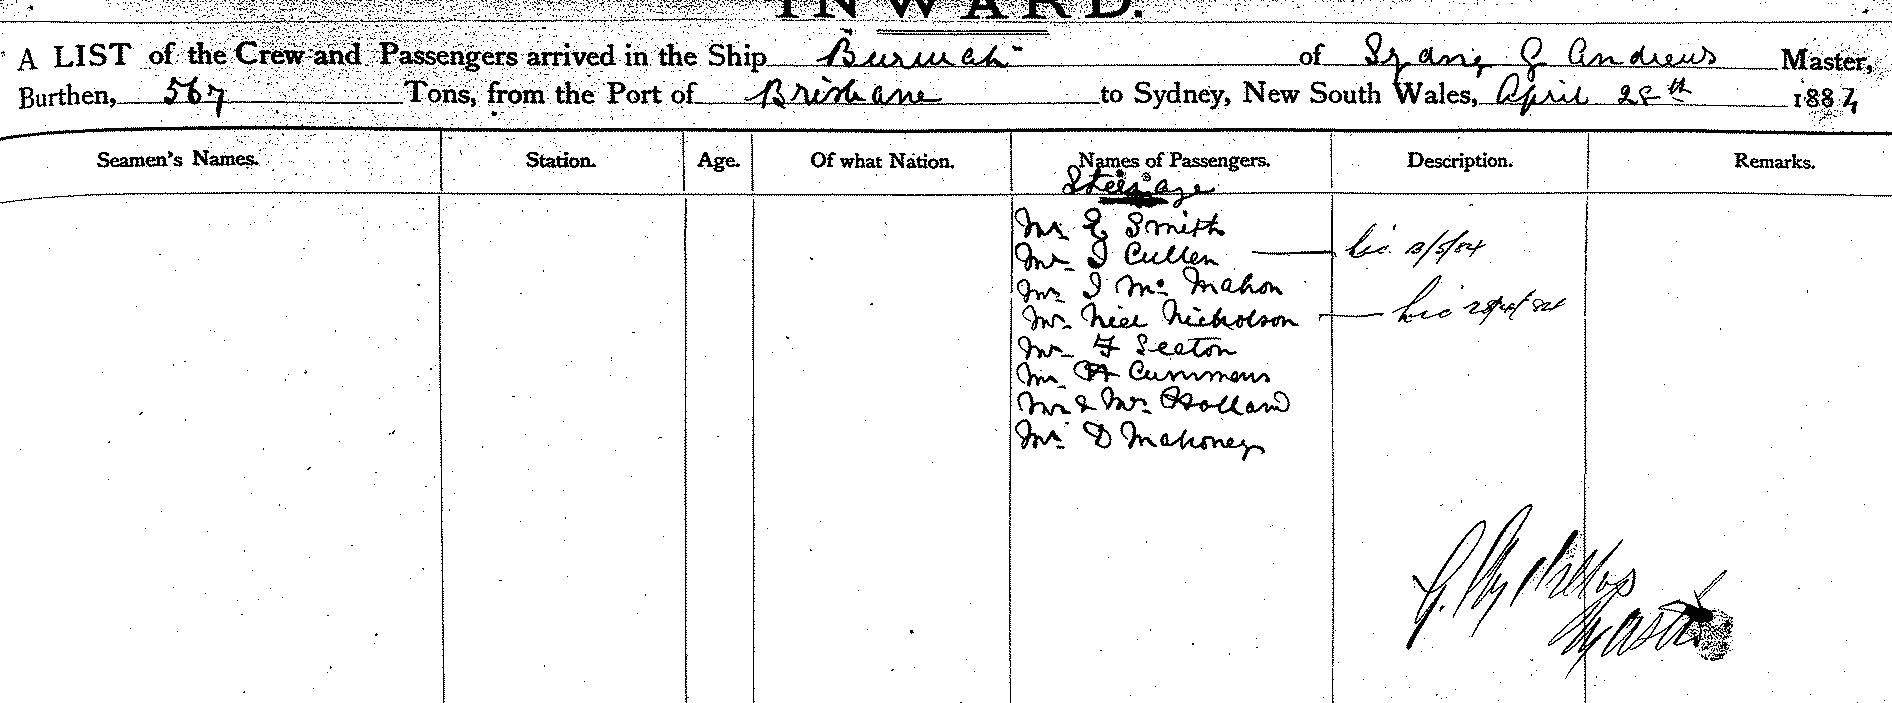 INWARD.
A LIST of the Crew and Passengers arrived in the Ship Burwah of Sydney G Andrews Master,
Burthen, 567 Tons, from the Port of Brisbane to Sydney, New South Wales, April 28th 1884
Seamen's Names. Station. Age. Of what Nation. Names of Passengers. Description. Remarks.
Steerage
Mr E Smith
Mr J Cullen
Mr J Mc Mahon
Mr Niel Nicholson
Mr F Seaton
Mr H Cummens
Mr & Mrs Holland
Mr D Mahoney
G. Andrews
Master